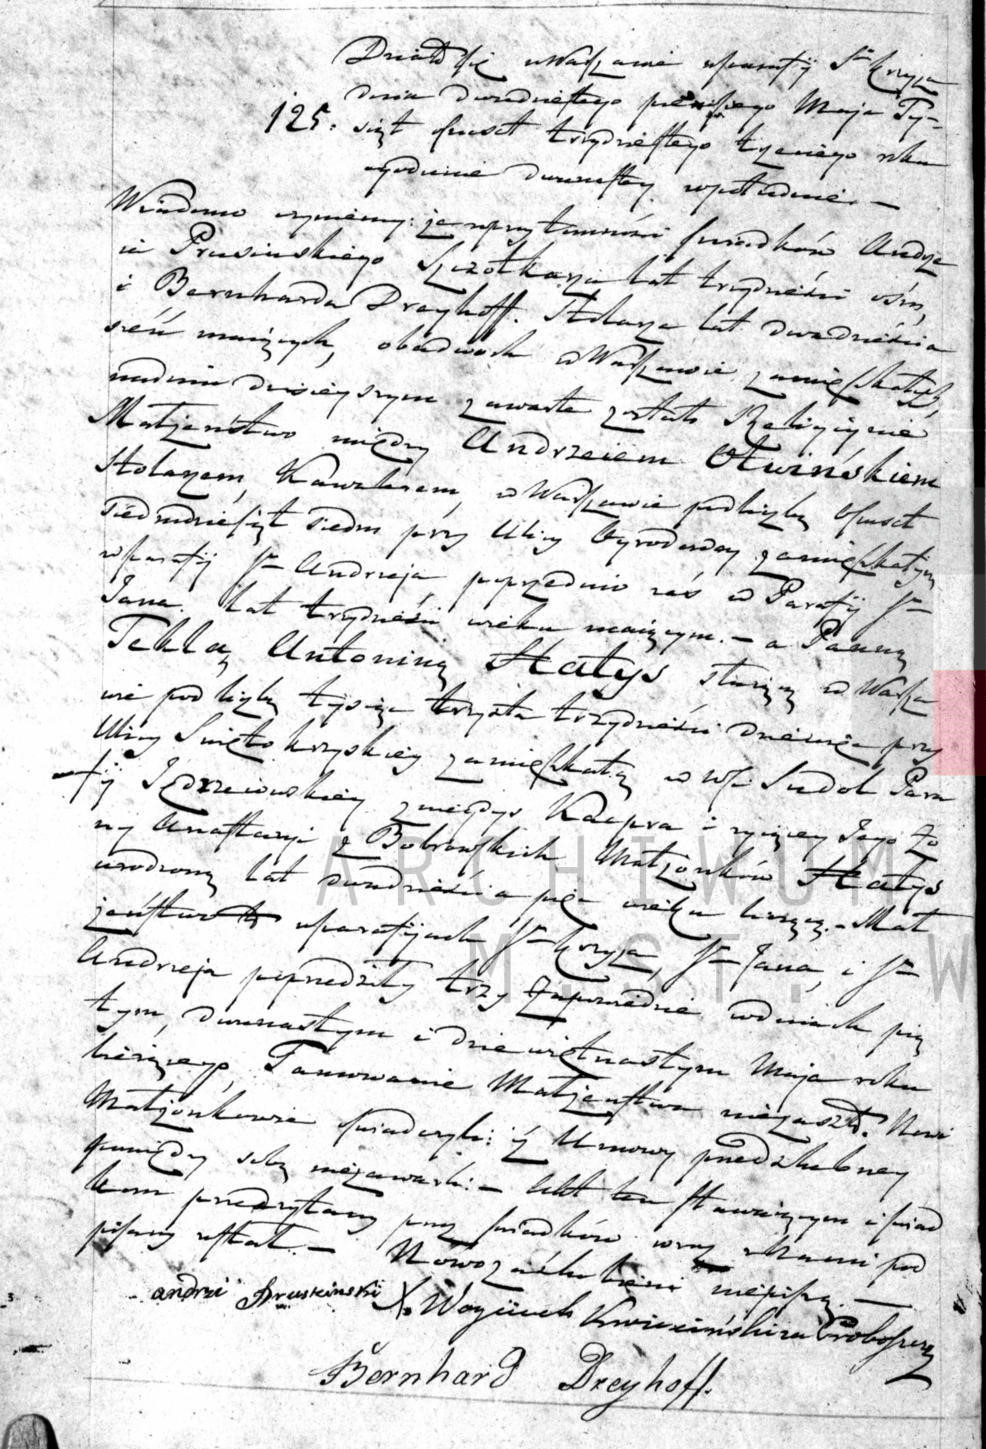 Działo się w Warszawie w parafij Sgo Krzyża
dnia dwudziestego pierwszego Maja Ty-
125. siąt ośmset trzydziestego trzeciego roku
o godzinie dwunastey w południe. —
Wiadomo czyniemy: że w przytomności świadków Andrze
ia Prusinskiego Szczotkarza lat trzydzieści ośm,
i Bernharda Dreyhoff. Stolarza lat dwadzieścia
sześć maiących, obudwóch w Warszawie zamięszkałych,
na dniu dzisieyszym zawarte zostało Religiynie
Małżeństwo między Andrzeiem Otwińskiem
Stolarzem, Kawalerem, w Warszawie pod liczbą ośmset
siedmdziesiąt siedm przy Ulicy Ogrodowey zamięszkałym
w parafij Sgo Andrzeja poprzednio zaś w Parafij Sgo
Jana. lat trzydzieści wieku maiącym. — a Panną
Teklą Antoniną Hałys służącą w Warsza
wie pod liczbą tysiąc trzysta trzydzieści dziewięć przy
Ulicy Święto krzyskiey zamięszkałą w Wsi Sudoł Para
fij Jędrzeiowskiey z niegdys Kacpra i żyiącey Jego Żo
ny Anastazyi z Bobrowskich Małżonków Hałys
urodzoną lat dwadzieścia pięć wieku liczącą. — Mał
żeństwo to w parafijach Sgo Krzyża, Sgo Jana, i Sgo
Andrzeja poprzedziły trzy Zapowiedzie w dniach pią
tym, dwunastym i dziewiętnastym Maja roku
bieżącego, Tamowanie Małżeństwa niezaszło. Nowi
Małżonkowie świadczyli: iż Umowy przedślubney
pomiędzy sobą niezawarli. — Akt ten stawaiącym i świad
kom przeczytany przy świadków wraz z Nami pod
pisany został. — Nowozaślubieni niepiszą. —
andrzi Pruszinski X. Woyciech Kwiecińskiza Proboszcz
Bernhard Dreyhoff.
ARCHIWUM
M.ST. W